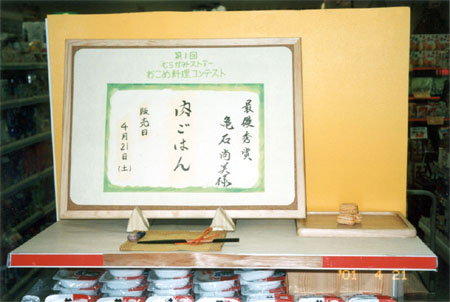 第1回
むらかみストアー
おこめ料理コンテスト
最優秀賞
亀石尚美様
肉ごはん
販売日
4月21日(土)
'01 4 21